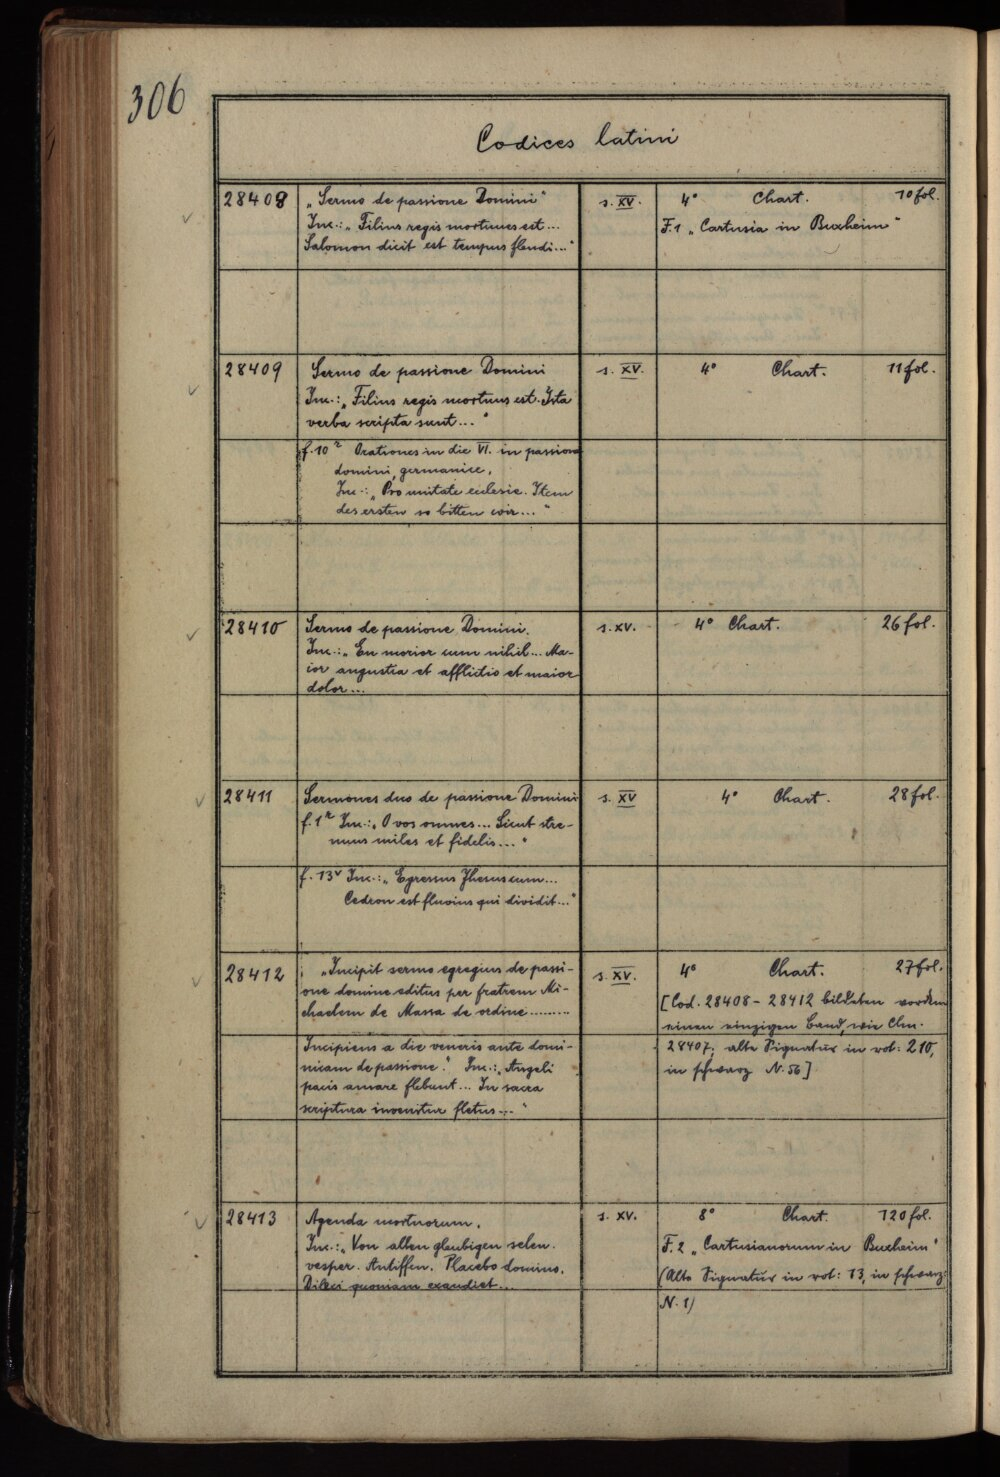 306
Codices latini
28408 „Sermo de passione Domini" s. XV. 4° Chart. 10 fol.
Inc.: „Filius regis mortuus est... F.1 „Cartusia in Buxheim"
Salomon dicit est tempus flendi..."
28409 Sermo de passione Domini s. XV. 4° Chart. 11 fol.
Inc.: „Filius regis mortuus est. Ista
verba scripta sunt..."
f. 10r Orationes in die VI. in passione
domini, germanice.
Inc.: „Pro unitate eclesie. Item
des ersten so bitten wir..."
28410 Sermo de passione Domini. s. XV. 4° Chart. 26 fol.
Inc.: „En morior cum nihil... Ma-
ior angustia et afflictio et maior
dolor...
28411 Sermones duo de passione Domini s. XV 4° Chart. 28 fol.
f. 1r Inc.: „O vos omnes... Sicut stre-
nuus miles et fidelis..."
f. 13v Inc.: „Egressus Jhesus cum...
Cedron est fluvius qui dividit..."
28412 „Incipit sermo egregius de passi- s. XV. 4° Chart. 27 fol.
one domine editus per fratrem Mi- [Cod. 28408 - 28412 bildeten vordem
chaelem de Massa de ordine ......... einen einzigen Band, wie Clm.
Incipiens a die veneris ante domi- 28407; alte Signatur in rot: 210,
nicam de passione." Inc.: „Angeli in schwarz N. 56]
pacis amare flebunt... In sacra
scriptura invenitur fletus..."
28413 Agenda mortuorum. s. XV. 8° Chart. 120 fol.
Inc.: „Von allen gleubigen selen. F. 2 „Cartusianorum in Buxheim"
vesper. Antiffen. Placebo domino. (Alte Signatur in rot: 13, in schwarz:
Dilexi quoniam exaudiet... N. 1)